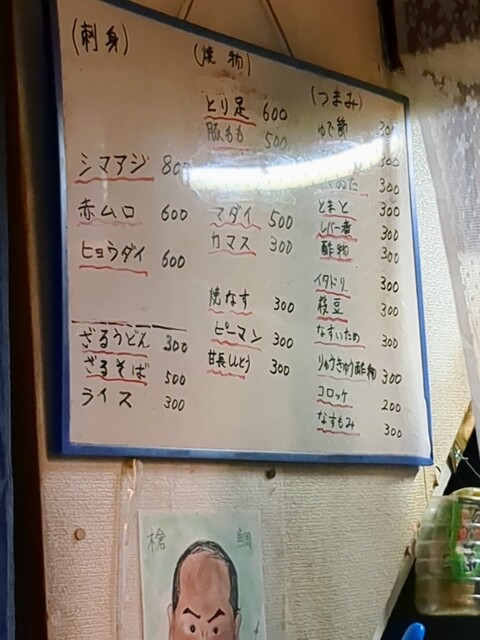 (刺身)
シマアジ 800
赤ムロ 600
ヒョウダイ 600
ざるうどん 300
ざるそば 500
ライス 300
(焼物)
とり足 600
豚もも 500
マダイ 500
カマス 300
焼なす 300
ピーマン 300
甘長しとう 300
(つまみ)
ゆで節 300
300
とまと 300
レバー煮 300
酢物 300
イタドリ 300
枝豆 300
なすいため 300
りゅうきゅう酢物 300
コロッケ 200
なすもみ 300
槍 鯛